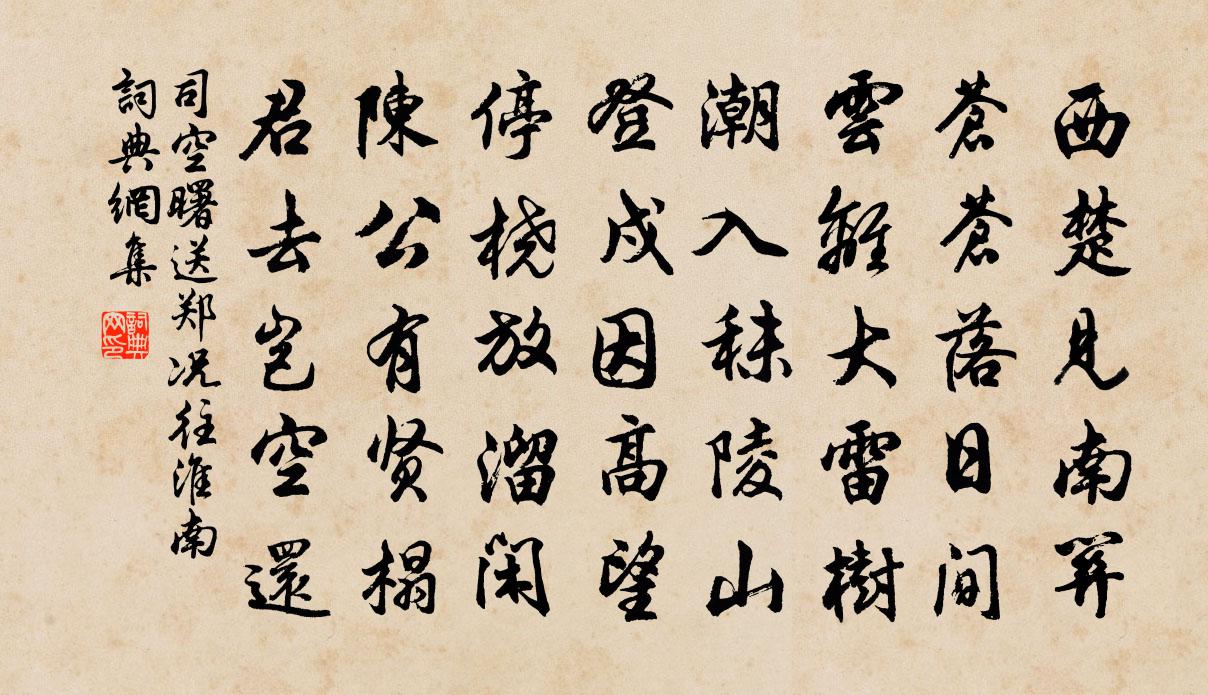 西楚見南关
蒼蒼落日间
雲離大雷樹
潮入秣陵山
登戍因高望
停桡放溜闲
陳公有贤榻
君去岂空還
司空曙送郑况往淮南
詞典網集
詞典网印